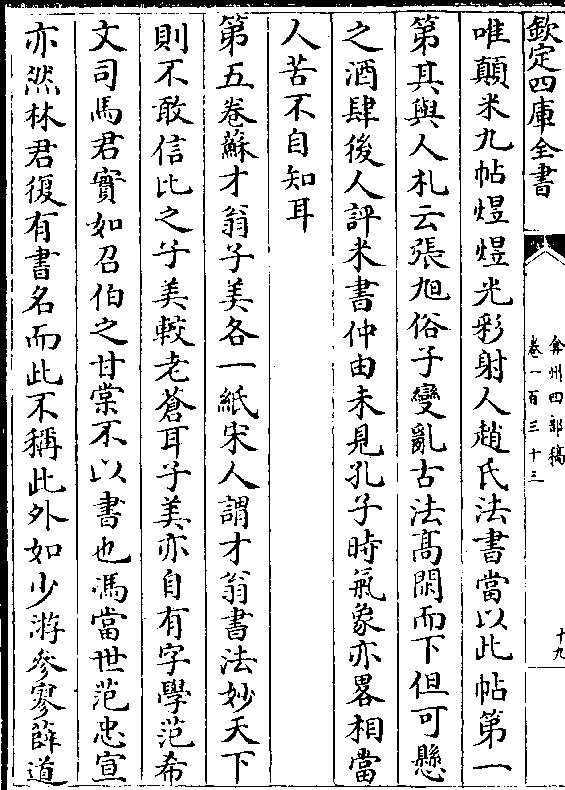 欽定四庫全書
弇州四部稿
卷一百三十三
十九
唯顛米九帖煜煜光彩射人趙氏法書當以此帖第一
第其與人札云張旭俗子變亂古法髙閑而下但可懸
之酒肆後人評米書仲由未見孔子時氣象亦畧相當
人苦不自知耳
第五卷蘇才翁子美各一紙宋人謂才翁書法妙天下
則不敢信比之子美較老蒼耳子美亦自有字學范希
文司馬君實如召伯之甘棠不以書也馮當世范忠宣
亦然林君復有書名而此不稱此外如少游參寥薛道